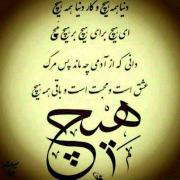 دنیا همه هیچ و کار دنیا همه هیچ
ای هیچ برای هیچ بر هیچ مپیچ
دانی که از آدمی چه ماند پس مرگ
عشق است و محبت است و باقی همه هیچ
هیچ